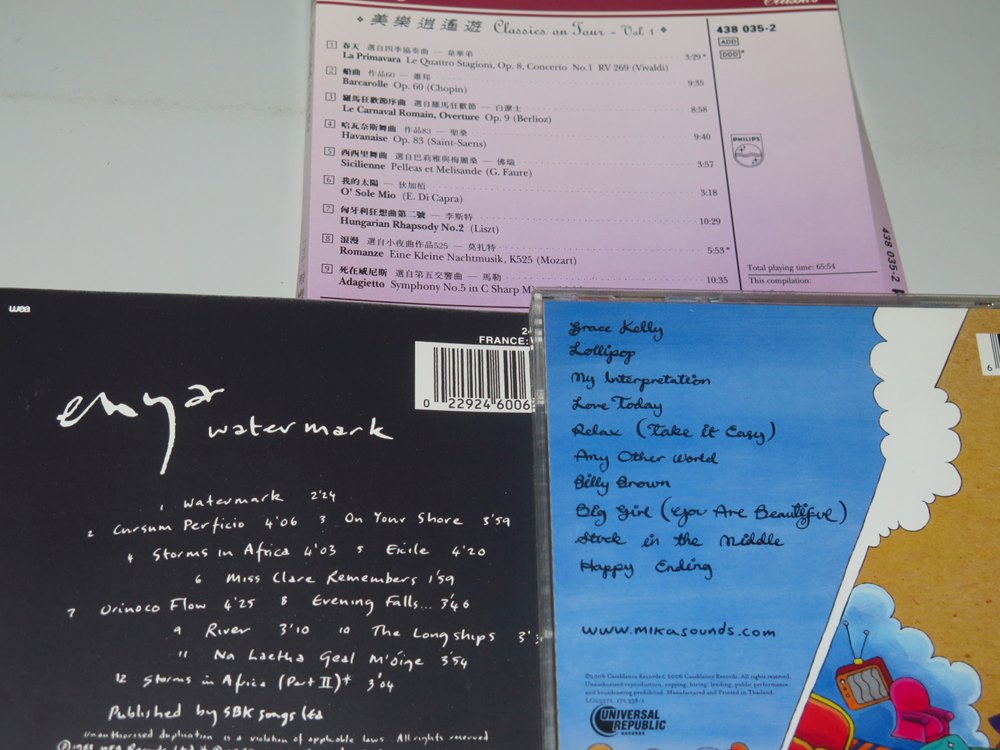 美樂逍遙遊 Classics on Tour - Vol 1
438 035-2
ADD
DDD*
1 春天 選自四季協奏曲 — 韋華第
La Primavara Le Quattro Stagioni, Op. 8, Concerto No.1 RV 269 (Vivaldi) 3:29*
2 船曲 作品60 — 蕭邦
Barcarolle Op. 60 (Chopin) 9:35
3 羅馬狂歡節序曲 選自羅馬狂歡節 — 白遼士
Le Carnaval Romain, Overture Op. 9 (Berlioz) 8:58
4 哈瓦奈斯舞曲 作品83 — 聖桑
Havanaise Op. 83 (Saint-Saens) 9:40
5 西西里舞曲 選自巴莉雅與梅麗桑 — 佛瑞
Sicilienne Pelleas et Melisande (G. Faure) 3:57
6 我的太陽 — 狄加柏
O' Sole Mio (E. Di Capra) 3:18
7 匈牙利狂想曲第二號 — 李斯特
Hungarian Rhapsody No.2 (Liszt) 10:29
8 浪漫 選自小夜曲作品525 — 莫扎特
Romanze Eine Kleine Nachtmusik, K525 (Mozart) 5:53*
9 死在威尼斯 選自第五交響曲 — 馬勒
Adagietto Symphony No.5 in C Sharp 10:35
PHILIPS
Total playing time: 65:54
This compilation:
438 035-2
wea
FRANCE:
0 22924 6006
enya
watermark
1 watermark 2'24
2 Cursum Perficio 4'06 3 On Your Shore 3'59
4 Storms in Africa 4'03 5 Exile 4'20
6 Miss Clare Remembers 1'59
7 Orinoco Flow 4'25 8 Evening Falls... 3'46
9 River 3'10 10 The Longships
11 Na Laetha Geal M'óige 3'54
12 Storms in Africa (Part II)* 3'04
Published by SBK songs Ltd
Unauthorised duplication is a violation of applicable laws. All rights reserved.
Grace Kelly
Lollipop
My Interpretation
Love Today
Relax (Take it Easy)
Any Other World
Billy Brown
Big Girl (You Are Beautiful)
Stuck in the Middle
Happy Ending
www.mikasounds.com
©2006 Casablanca Records 2006 Casablanca Records. All rights reserved.
Unauthorised reproduction, copying, hiring, lending, public performance
and broadcasting prohibited. Manufactured and Printed in Thailand.
UNIVERSAL
REPUBLIC
RECORDS
6